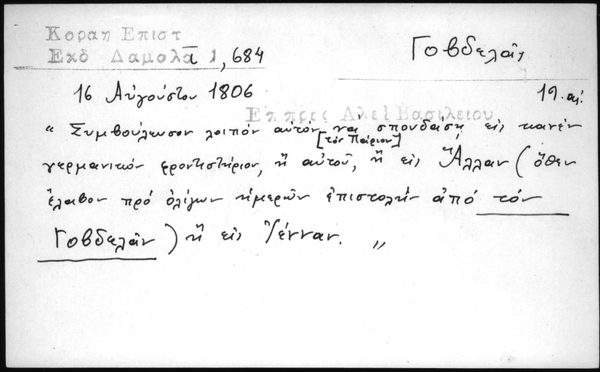 Κοραη Επιστ
Εκδ Δαμολᾶ 1, 684
Γοβδελᾶς
16 Αὐγούστου 1806
19. αἰ.
Επ προς Αλεξ Βασιλειου
" Συμβούλευσον λοιπόν αὐτόν [τόν Πιέριον] νά σπουδάσῃ εἰς κανέν
γερμανικόν φροντιστήριον, ἤ αὐτοῦ, ἤ εἰς Ἅλλαν (ὅθεν
ἔλαβον πρό ὀλίγων ἡμερῶν ἐπιστολήν ἀπό τόν
Γοβδελᾶν) ἤ εἰς Ἰένναν. "